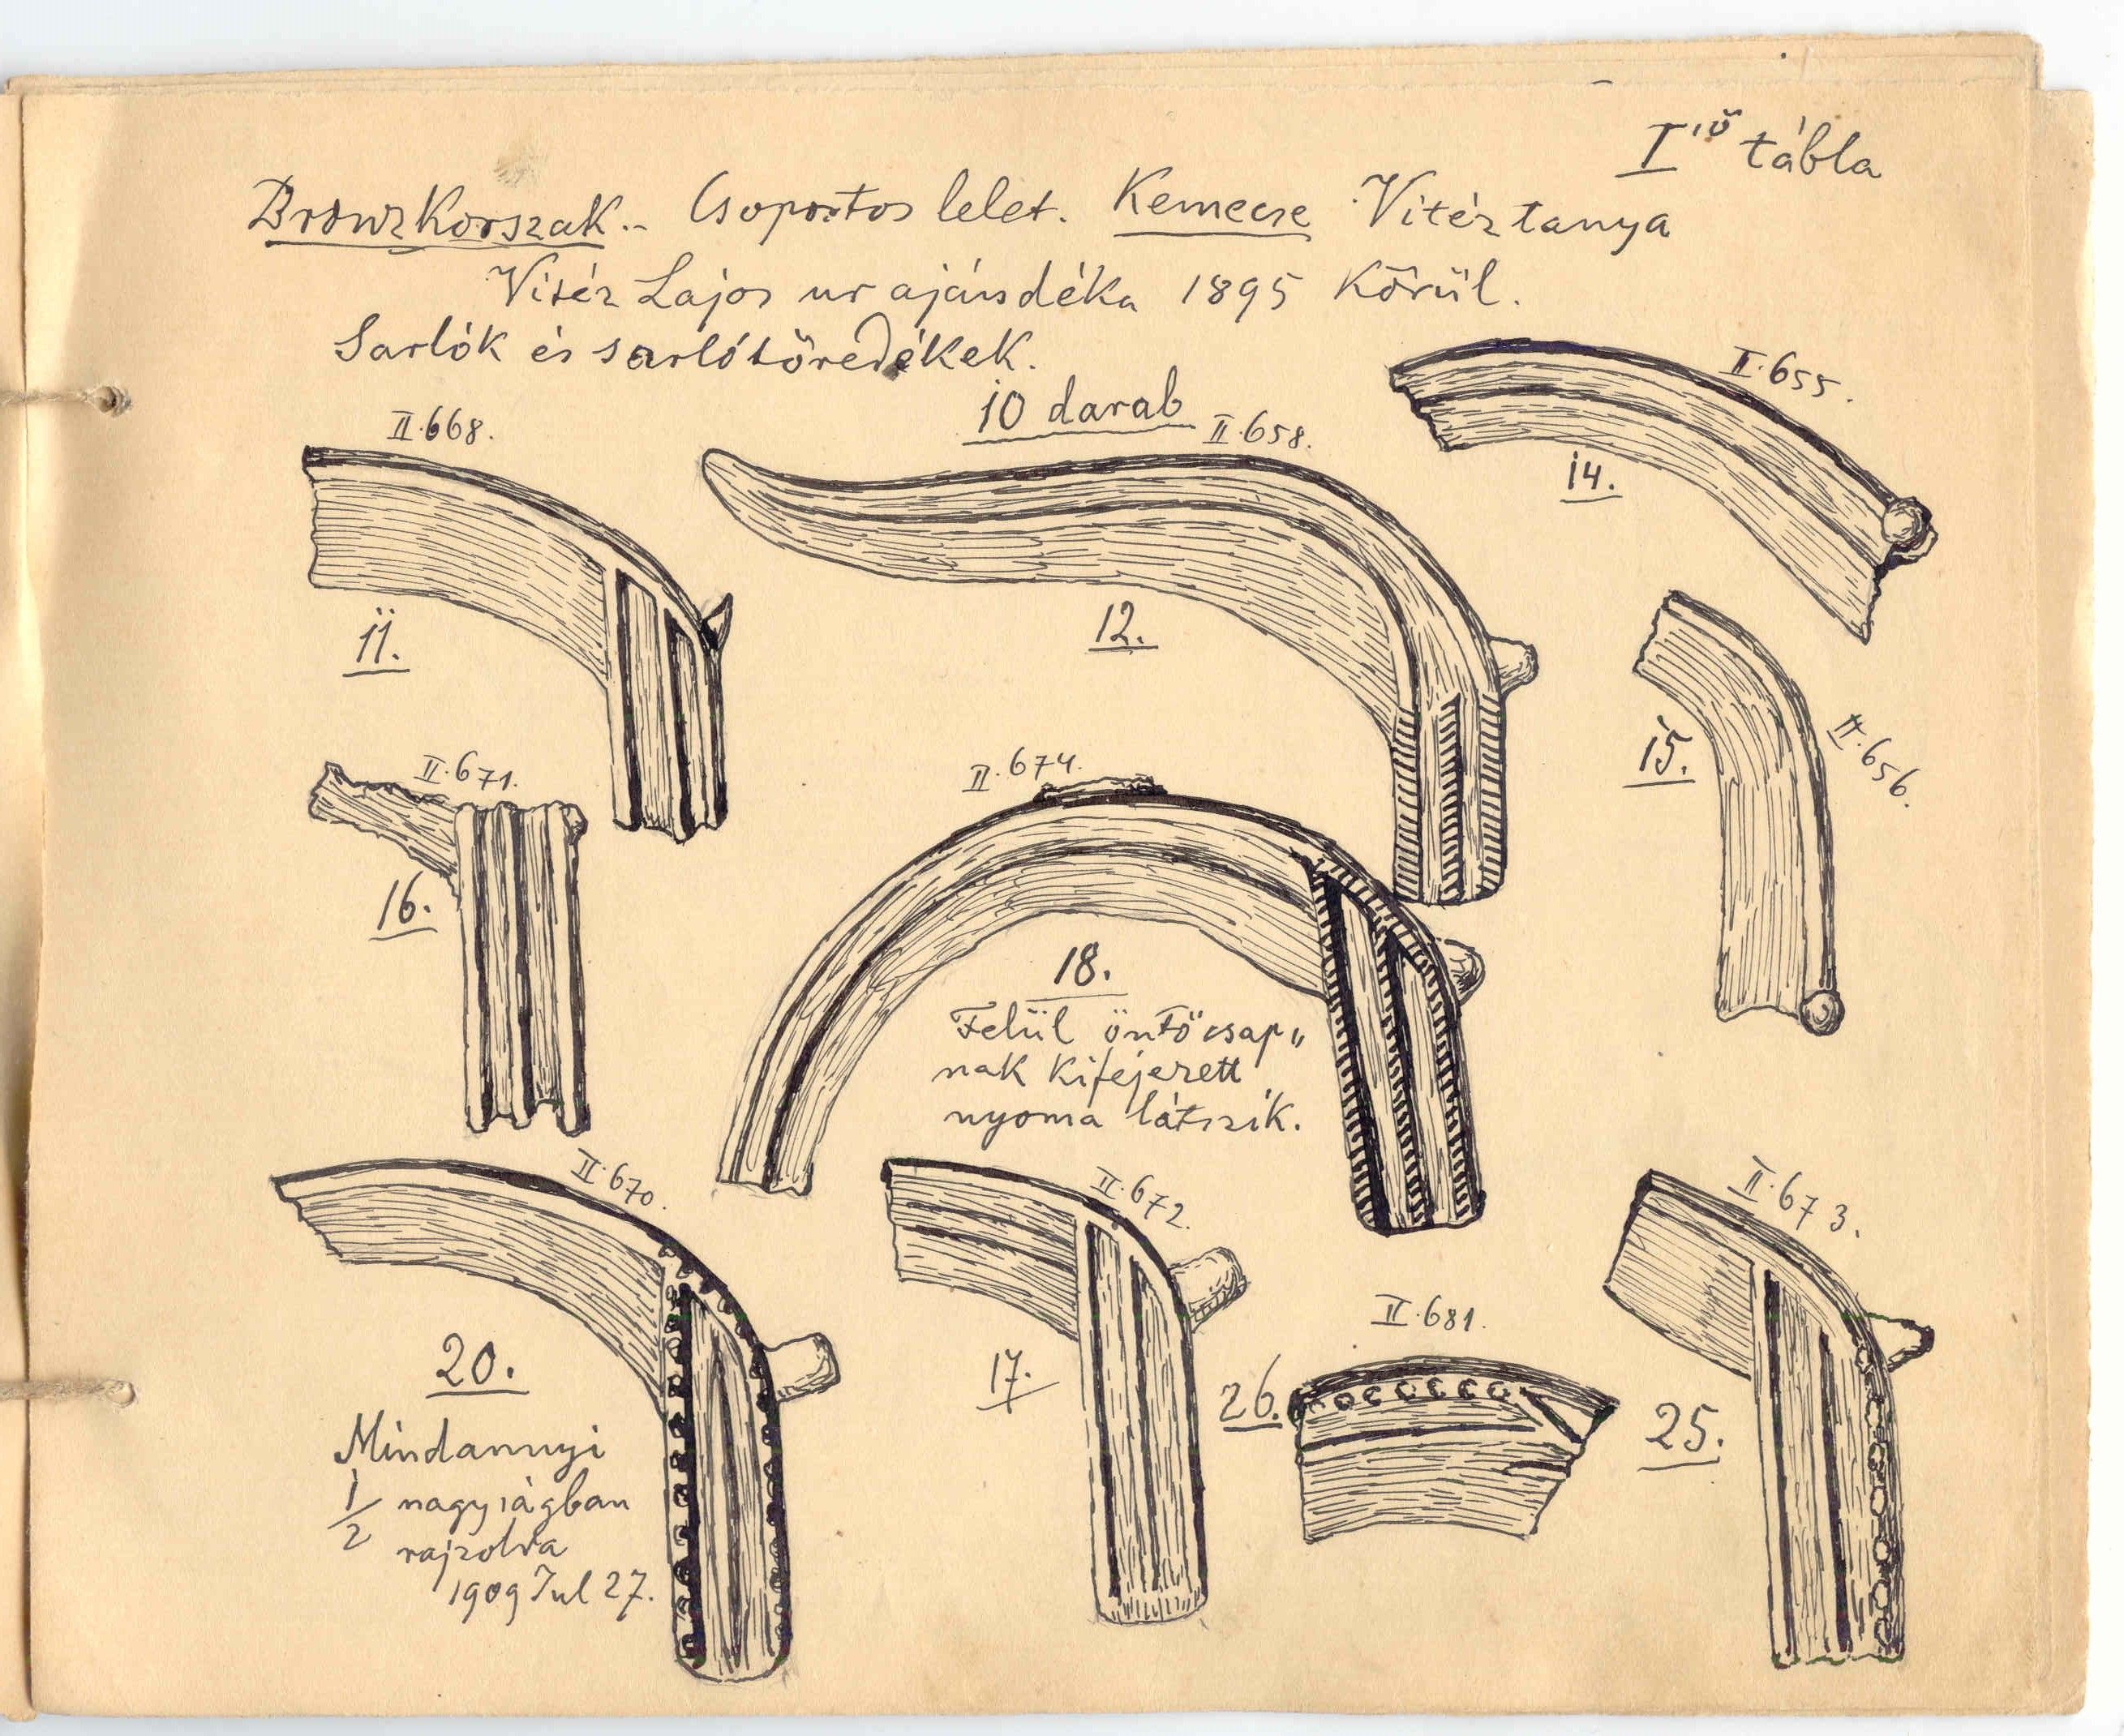 I.ső tábla
Bronzkorszak.- Csoportos lelet. Kemecse Vitéz tanya
Vitéz Lajos ur ajándéka 1895 körül.
Sarlók és sarlótöredékek.
10 darab
II.668.
II.658.
II.655.
11.
12.
14.
15.
II.656.
II.671.
16.
II.674.
18.
Felül öntőcsap„
nak kifejezett
nyoma látszik.
II.670.
II.672.
II.673.
20.
17.
II.681.
26.
25.
Mindannyi
1/2 nagyságban
rajzolva
1909 Jul 27.